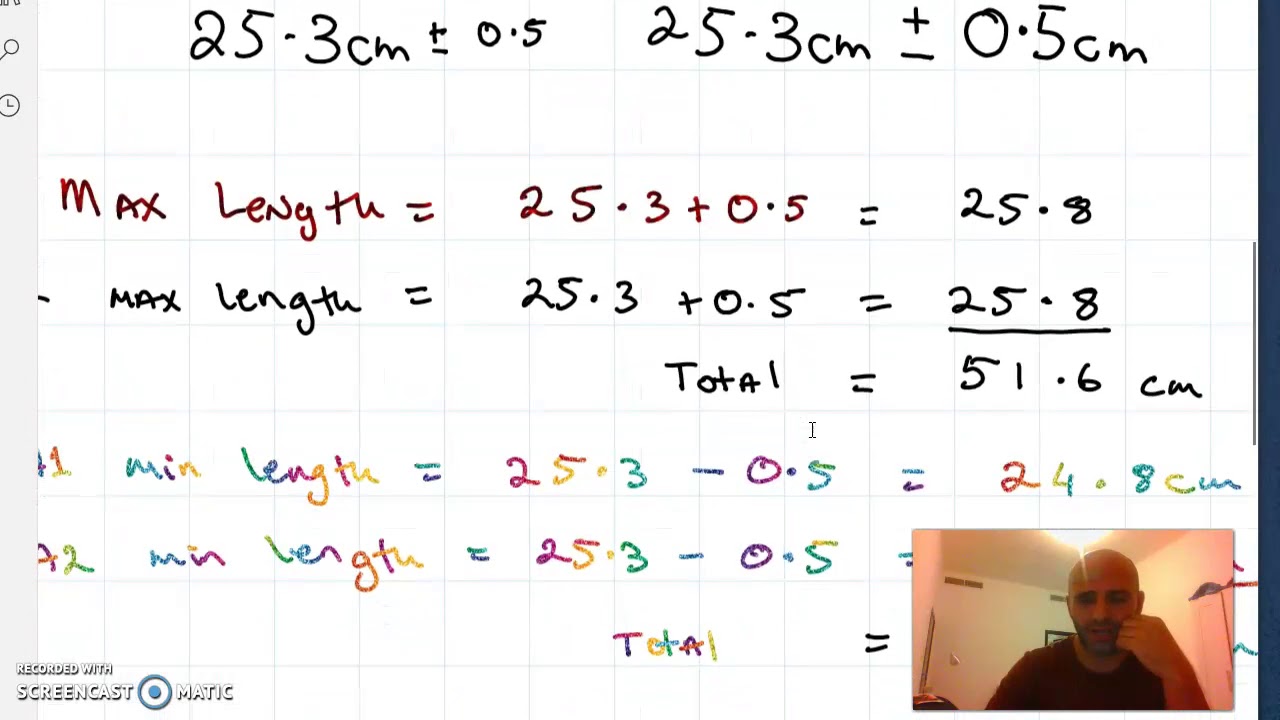 25.3cm ± 0.5 25.3cm ± 0.5cm
Max Length = 25.3 + 0.5 = 25.8
max length = 25.3 + 0.5 = 25.8
Total = 51.6 cm
A1 min length = 25.3 - 0.5 = 24.8cm
A2 min length = 25.3 - 0.5 =
Total =
RECORDED WITH
SCREENCAST MATIC